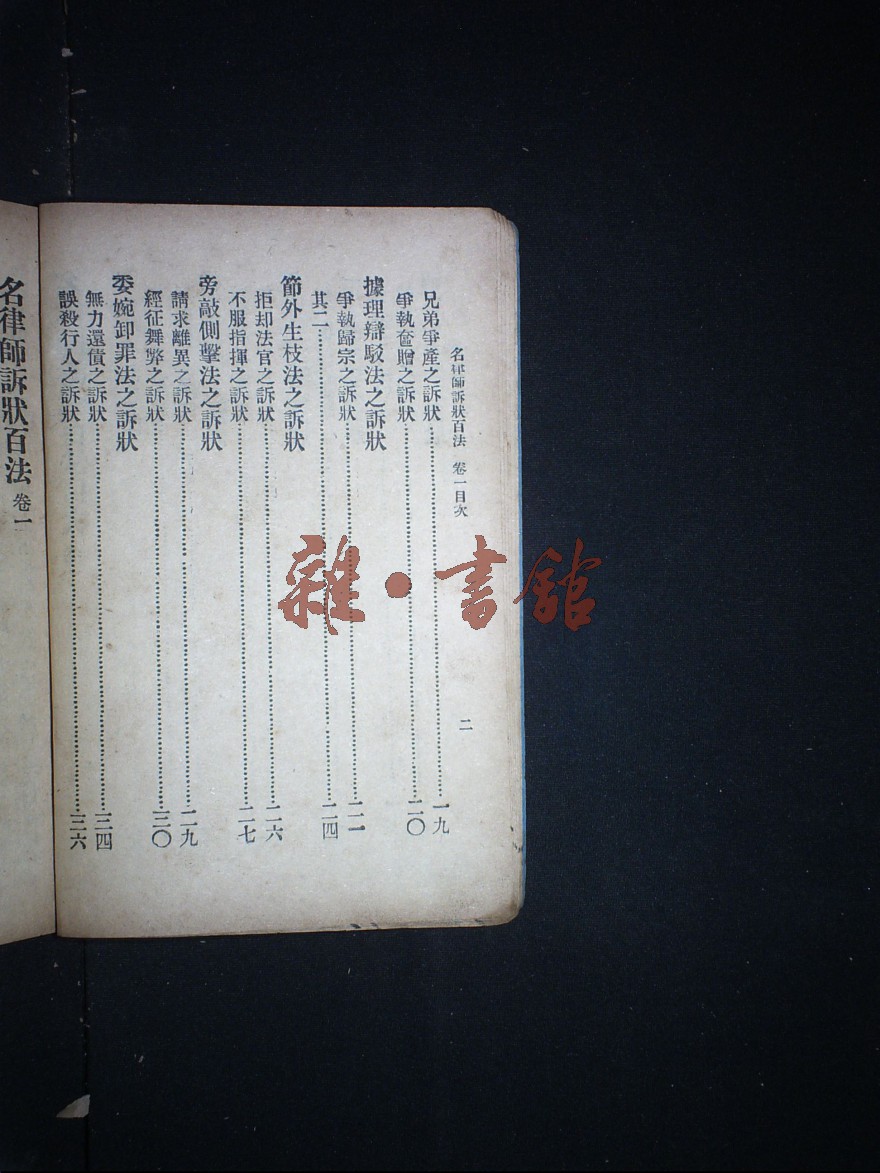 名律師訴狀百法 卷一目次 二
兄弟爭產之訴狀……一九
爭執奩贈之訴狀……二〇
據理辯駁法之訴狀
爭執歸宗之訴狀……二一
其二……二四
節外生枝法之訴狀
拒却法官之訴狀……二六
不服指揮之訴狀……二七
旁敲側擊法之訴狀
請求離異之訴狀……二九
經征舞弊之訴狀……三〇
委婉卸罪法之訴狀
無力還債之訴狀……三四
誤殺行人之訴狀……三六
名律師訴狀百法 卷一
雜·書館